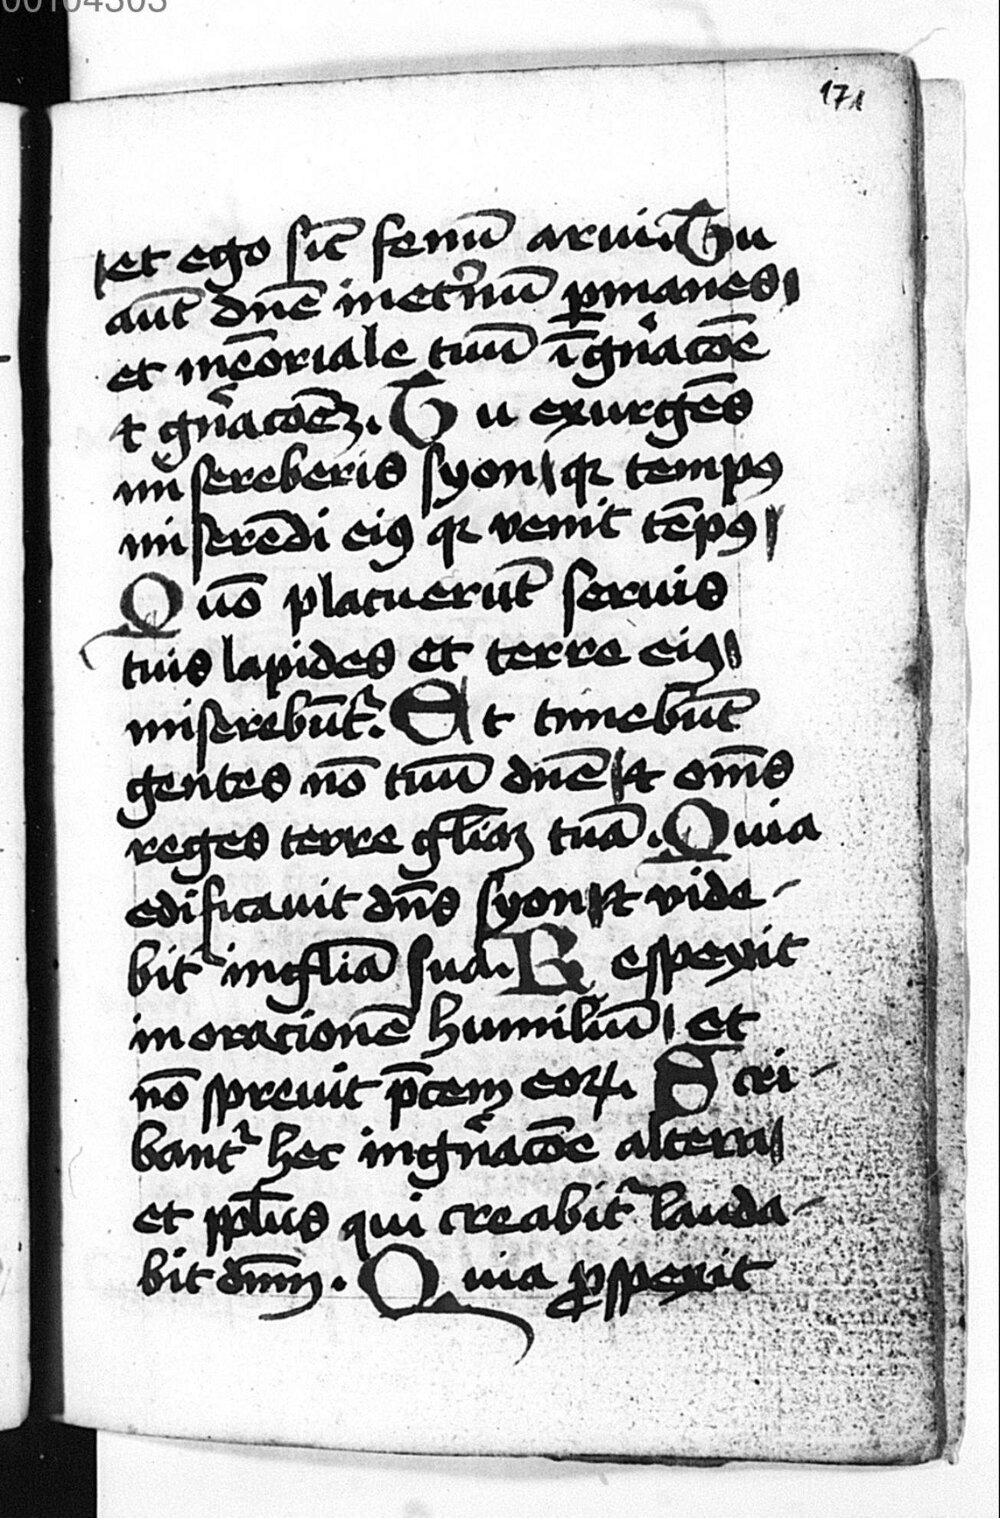 00104303
171
et ego sic̄ fenū arui. Tu
aūt dn̄e inet᷑nū ꝑmanes
et mēoriale tuū īgn̄acōe
⁊ gn̄acōeꝫ. Tu exurgēs
misereberis syon qꝛ tempꝰ
miserēdi eiꝰ qꝛ venit tēpꝰ
Quō placuerūt seruis
tuis lapides et terre eiꝰ
miserebūt᷑. Et timebūt
gentes nō tuū dn̄e ⁊ om̄s
reges terre gl̄iaꝫ tuā. Quia
edificauit dn̄s syon ⁊ vide-
bit᷑ in gl̄ia sua. Respexit
in oracionē humiliū et
nō spreuit p̄cem eoꝝ. Scri-
bant᷑ hec in gn̄acōe altera
et ppl̄us qui creabit᷑ lauda-
bit dn̄m. Quia ꝓspexit